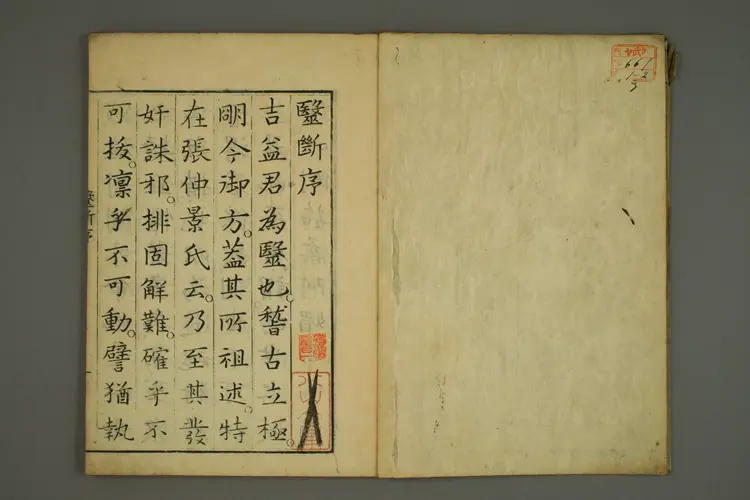 毉斷序
吉益君為毉也。稽古立極。
明今御方。蓋其所祖述。特
在張仲景氏云。乃至其發
奸誅邪。排固解難。確乎不
可拔。凛乎不可動。譬猶執
毉斷序
一